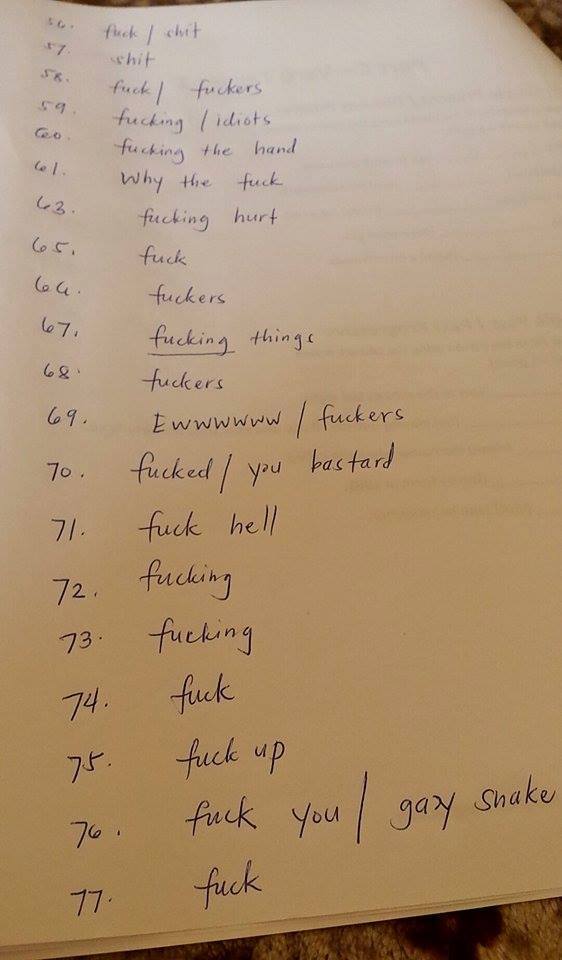 56. fuck / shit
57. shit
58. fuck / fuckers
59. fucking / idiots
60. fucking the hand
61. Why the fuck
63. fucking hurt
65. fuck
66. fuckers
67. fucking things
68. fuckers
69. Ewwwwww / fuckers
70. fucked / you bastard
71. fuck hell
72. fucking
73. fucking
74. fuck
75. fuck up
76. fuck you / gay snake
77. fuck